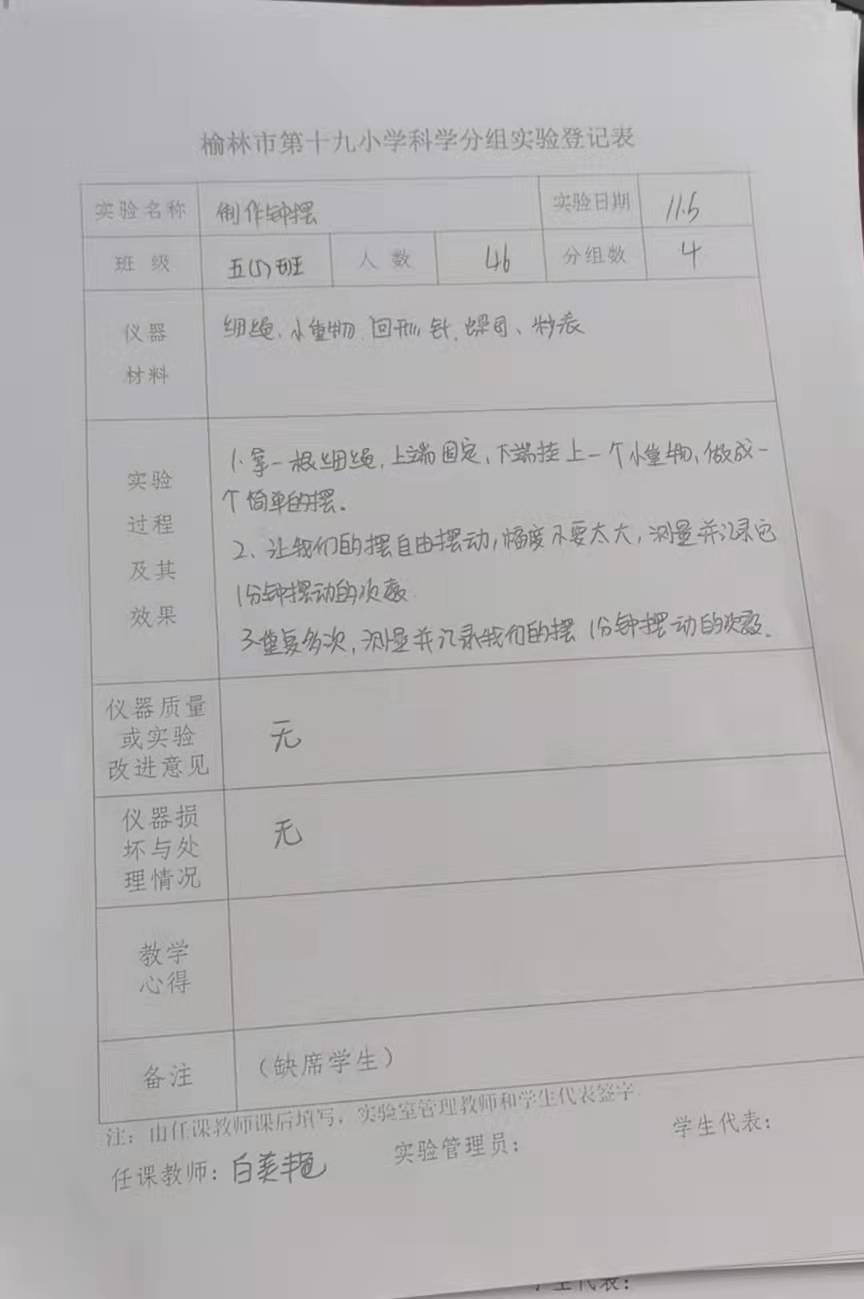 榆林市第十九小学科学分组实验登记表
实验名称 制作钟摆 实验日期 11.5
班 级 五(5)班 人 数 46 分组数 4
仪器
材料
细绳、小重物、回形针、螺母、秒表
实验
过程
及其
效果
1.拿一根细绳,上端固定,下端挂上一个小重物,做成一
个简单的摆。
2、让我们的摆自由摆动,幅度不要太大,测量并记录它
1分钟摆动的次数
3.重复多次,测量并记录我们的摆1分钟摆动的次数.
仪器质量
或实验
改进意见
无
仪器损
坏与处
理情况
无
教学
心得
备注 (缺席学生)
注:由任课教师课后填写,实验室管理教师和学生代表签字
任课教师:白美艳 实验管理员: 学生代表:
学生代表: